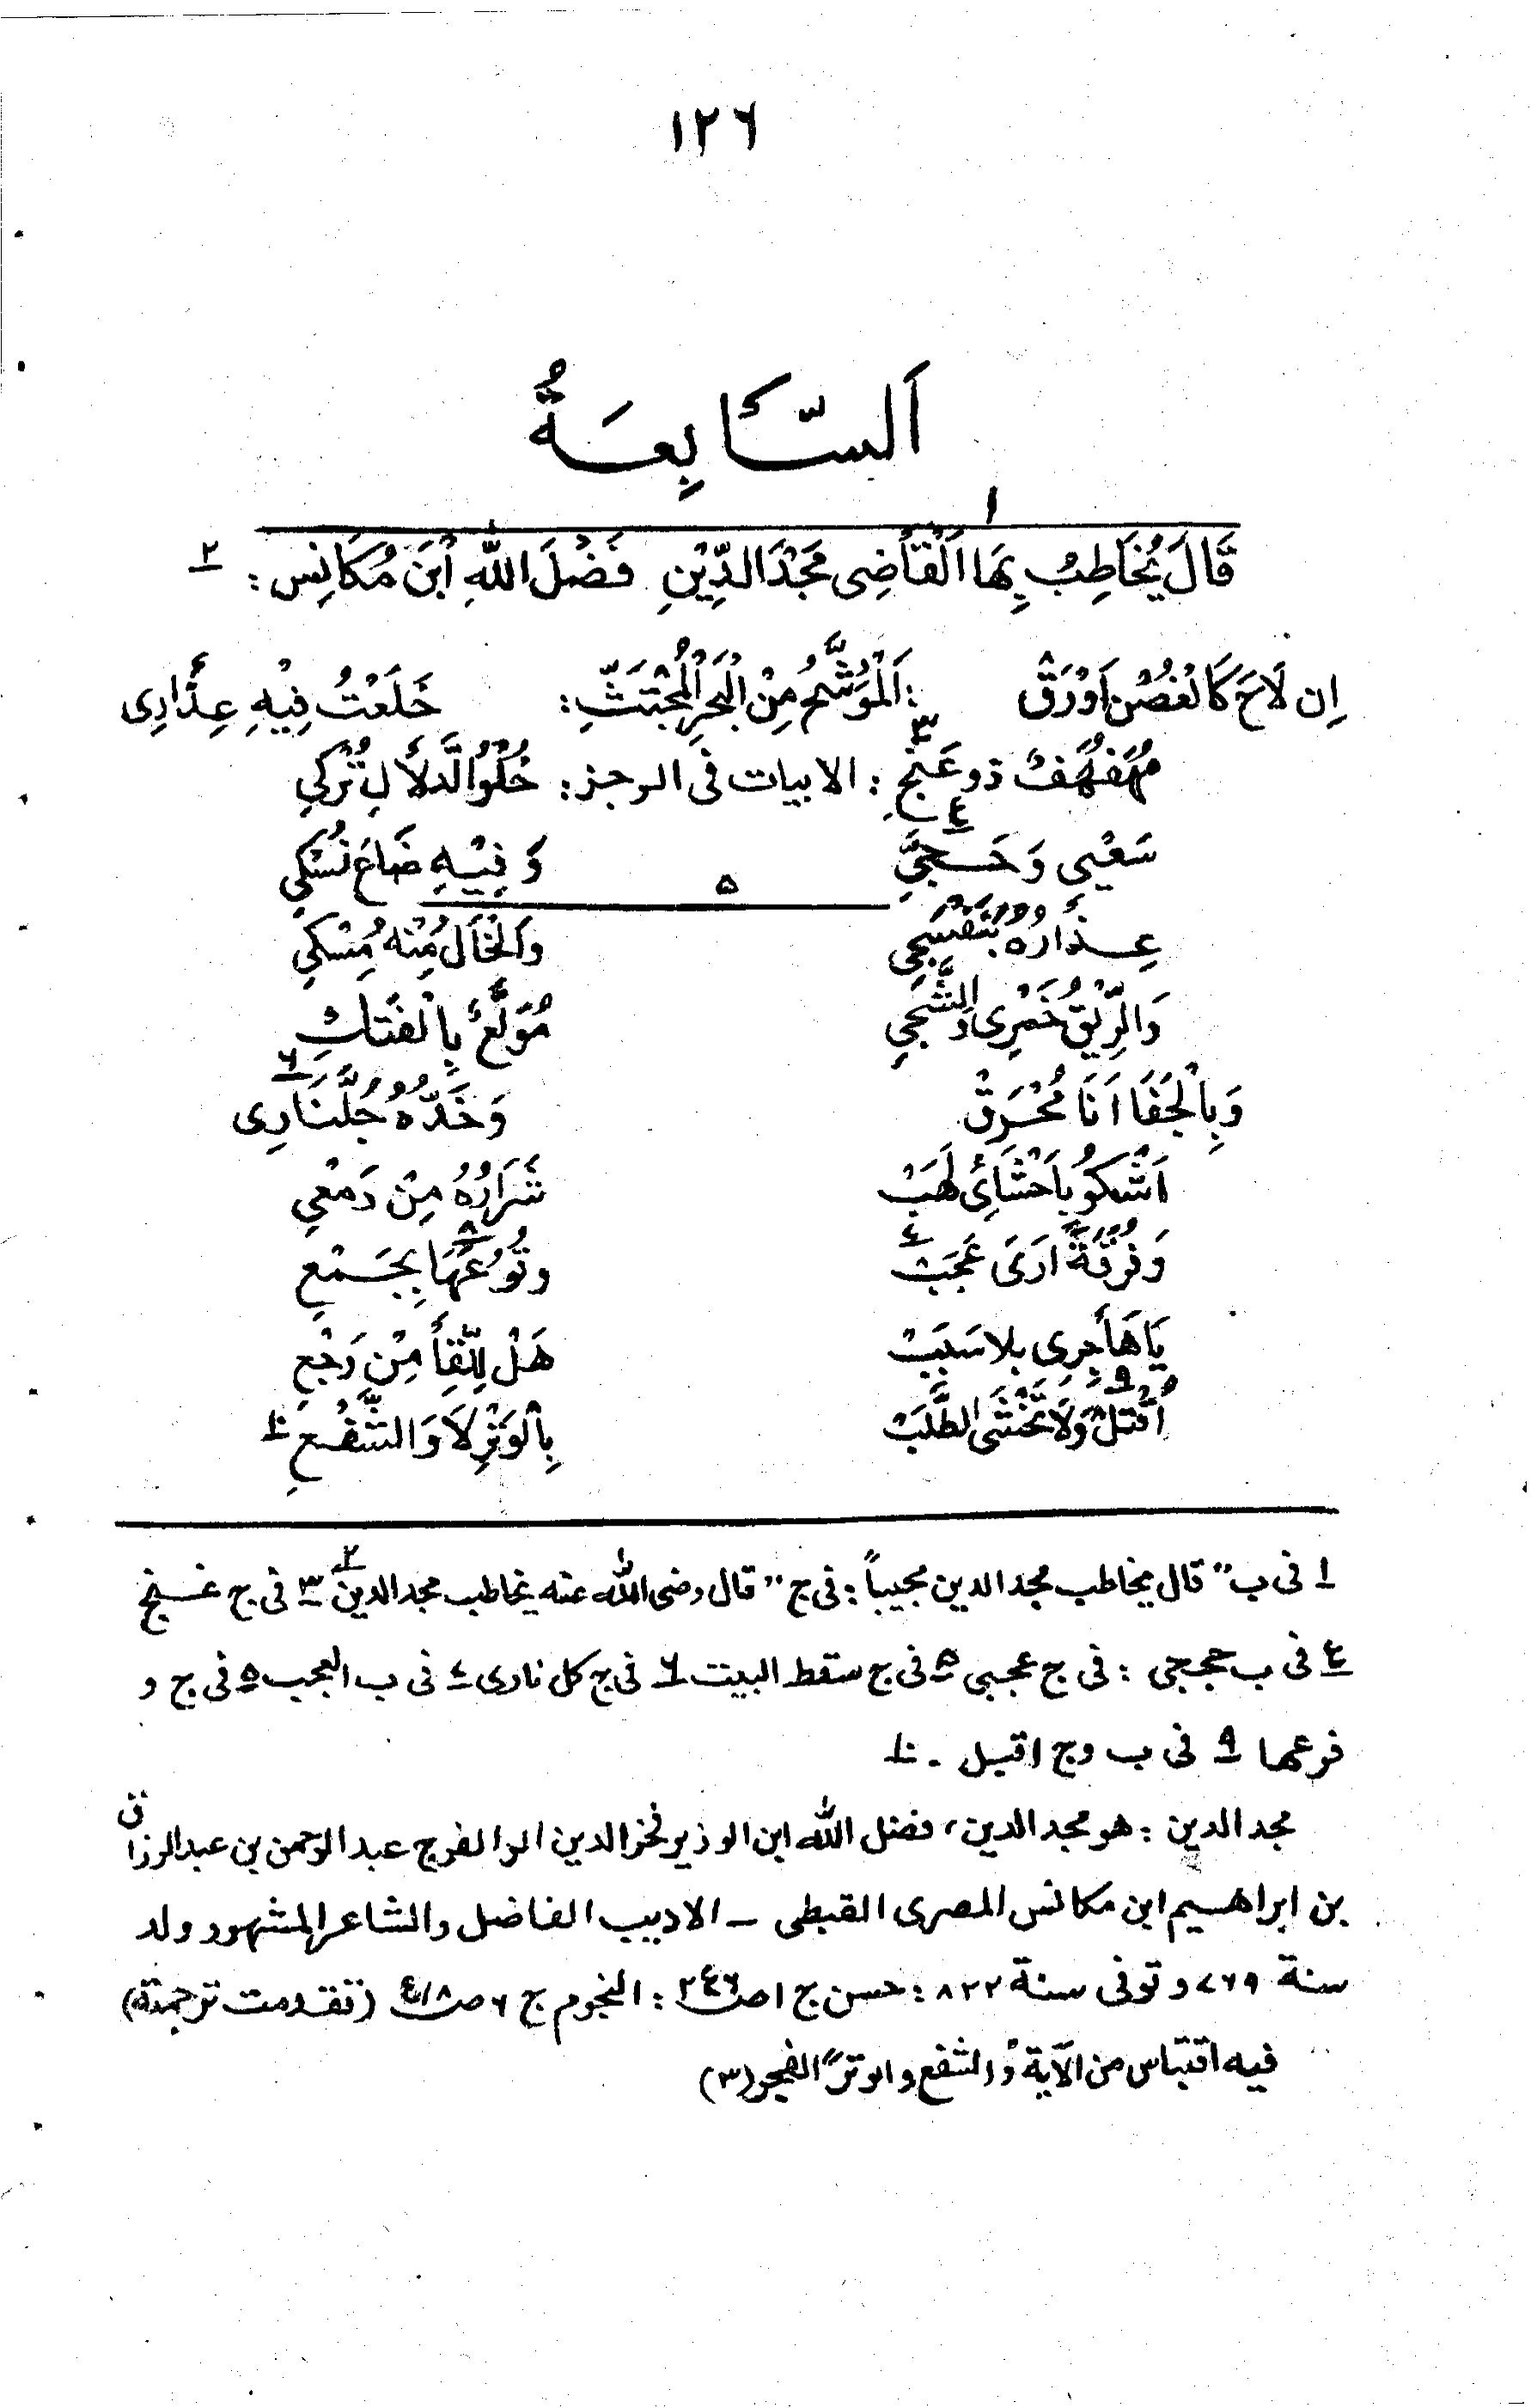 ١٢٦
اَلسَّابِعَةُ
١
قَالَ يُخَاطِبُ بِهَا اَلْقَاضِى مَجْدَ الدِّيْنِ فَضْلَ اللهِ اُبْنَ مُكَانِس: ٢
اِن لَاحَ كَالغُصْنِ اَوْرَقْ :اَلْمُوَشَّحُ مِنْ الْبَحْرِ الْمُجْتَثِّ: خَلَعْتُ فِيْهِ عِذَارِى
مُهَفْهَفٌ ذو غَنْجِ ٣ : الابيات فى الرجز: حُلْوُ الدَّلَالِ تُرْكِي
سَعْيِى وَ حَجِّي ٤ وَ فِيْهِ ضَاعَ نُسْكِي
٥
عِذَارُهُ بَنَفْسَجِي وَالْخَالُ مِنْهُ مِسْكِي
وَالرِّيْقُ خَمْرِى وَالشَّجِي مُوَلَّعٌ بِالْفَتَاكِ
وَبِالْجَفَا اَنَا مُحْرَقْ وَخَدُّهُ جُلَّنَارِى ٦
اَشْكُو بِاَحْشَائِى لَهَبْ شَرَارُهُ مِنْ دَمْعِي
وَفُرْقَةً اَرَى عَجَبْ ٧ وتُوْعُهَا بِجَمْعِ ٨
يَا هَاجِرِى بلا سَبَبْ هَلْ لِلِّقَا مِنْ رَجْعِ
اُقْتُلْ ٩ وَلَا تَخْشَى الطَّلَبْ بِالْوَتْرِ لَا وَالشَّفْعِ ١٠
١ فى ب "قال يخاطب مجد الدين مجيباً : فى ج "قال رضى الله عنه يخاطب مجد الدين ٢ ٣ فى ج غنج
٤ فى ب حججى : فى ج عجبى ٥ فى ج سقط البيت ٦ فى ج كل نارى ٧ فى ب العجب ٨ فى ج و
فرعها ٩ فى ب وج اقبل . ١٠
مجد الدين : هو مجد الدين، فضل الله ابن الوزير فخر الدين ابو الفرج عبد الرحمن بن عبد الرزاق
بن ابراهيم ابن مكانس المصرى القبطى – الاديب الفاضل والشاعر المشهور ولد
سنة ٧٦٩ و توفى سنة ٨٢٢ : حسن ج ١ ص ٢٤٦ : النجوم ج ٦ ص ٤١٨ (تقدمت ترجمتة)
فيه اقتباس من الآية "والشفع والوتر" الفجر (٣)